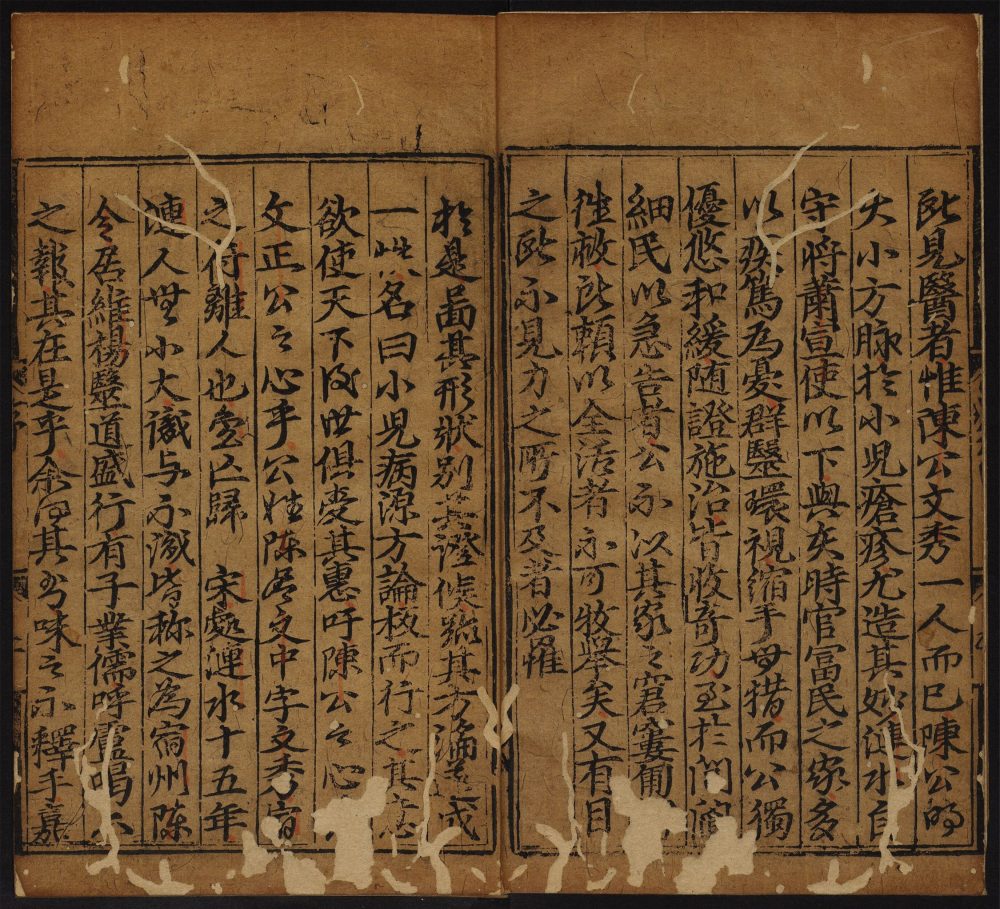 所見醫者惟陳公文秀一人而已陳公明
大小方脉扵小児瘡疹尤造其妙漣水自
守将蕭宣使以下與夫時官冨民之家多
以疾篤為憂群毉環視縮手無措而公獨
優悠和緩随證施治皆收竒功至扵閭
細民以急告者公亦以其家之窘窶匍
徃救所頼以全活者亦可牧舉矣又有目
之所亦見力之所不及者必惟
扵是啚其形状别其證候䟽其方論
一 名曰小児病源方論板而行之其意
欲使天下後世俱受其惠吁陳公之心
文正公之心乎公姓陳名文中字文秀宿
之符離人也 亡歸 宋處漣水十五年
漣人無小大識与不識皆称之為宿州陳
令居維楊毉道盛行有子業儒呼盧喝
之報其在是乎余 其書味之不釋手嘉